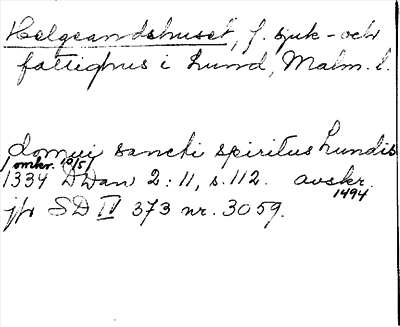 Helgeandshuset, f. sjuk- och
fattighus i Lund, Malm. l.
domui sancti spiritus Lundis
omkr. 10/5
1334 DDan 2:11, s. 112. avskr.
1494
jfr SD IV 373 nr. 3059.